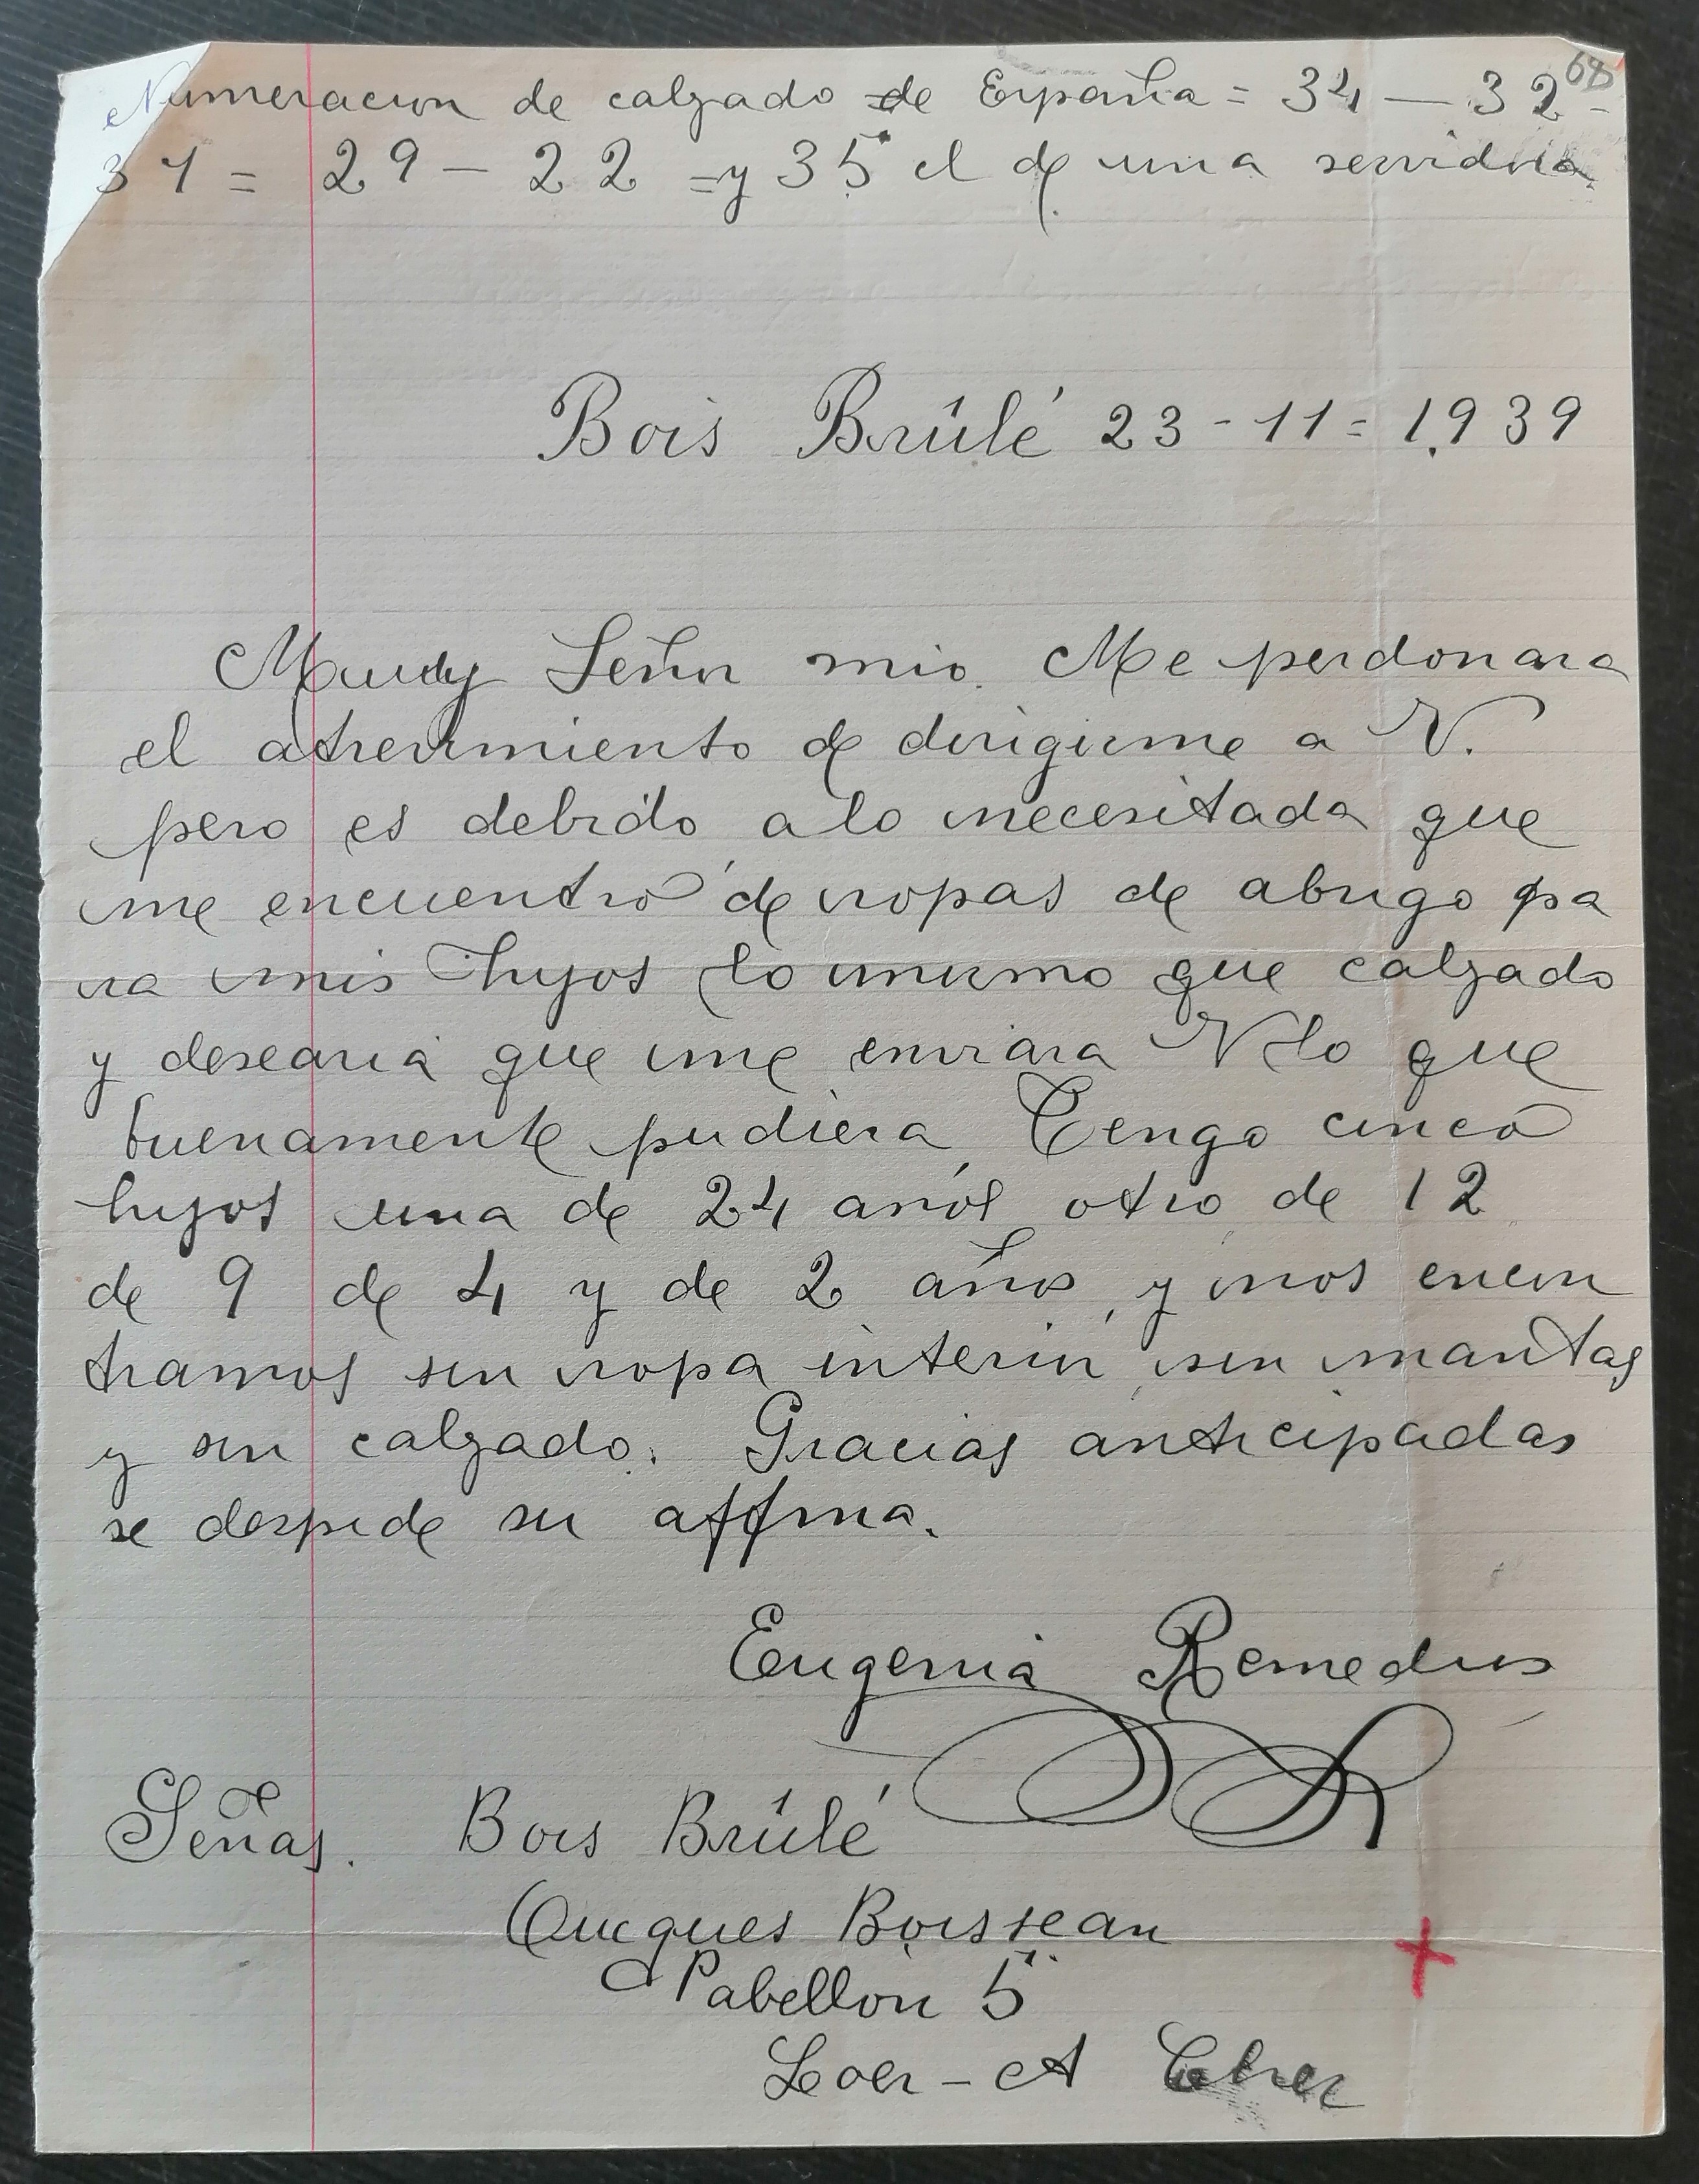 Numeracion de calzado de España = 34 — 32 -
31 = 29 - 22 = y 35 el de una servidora
68
Bois Brûlé 23 - 11 = 1.939
Muy Señor mio. Me perdonara
el atrevimiento de dirigirme a V.
pero es debido a lo necesitada que
me encuentro de ropas de abrigo pa
ra mis hijos lo mismo que calzado
y desearia que me enviara V lo que
buenamente pudiera, Tengo cinco
hijos una de 24 años, otro de 12
de 9 de 4 y de 2 años, y nos encon
tramos sin ropa interir, sin mantas
y sin calzado. Gracias anticipadas
se despide su affma.
Eugenia Remedios
Señas. Bois Brûlé
Boisseau
Pabellon 5
Loer - et Cher